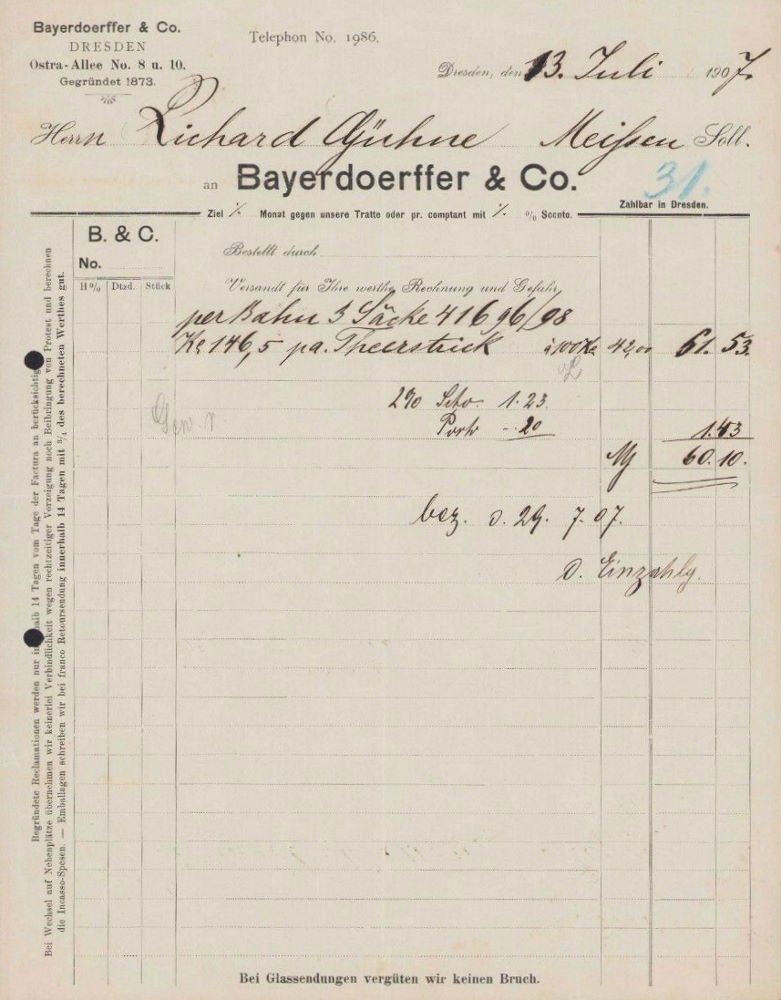 Bayerdoerffer & Co.
DRESDEN
Ostra-Allee No. 8 u. 10.
Gegründet 1873.
Telephon No. 1986.
Dresden, den 13. Juli 1907.
Herrn Richard Gühne Meißen Soll.
an Bayerdoerffer & Co.
31.
Zahlbar in Dresden.
Ziel ·/· Monat gegen unsere Tratte oder pr. comptant mit ·/· % Sconto.
B. & C.
No.
H% Dtzd. Stück
Bestellt durch
Versandt für Ihre werthe Rechnung und Gefahr
per Bahn 3 Säcke 41696/98
Ko 146,5 pa. Theerstrick à 100 Ko 42,00 61.53.
2% Scto. 1.23.
Porto -.20 1.43
M 60.10.
bez. d. 29. 7. 07.
d. Einzahlg.
Begründete Reclamationen werden nur innerhalb 14 Tagen vom Tage der Factura an berücksichtigt.
Bei Wechsel auf Nebenplätze übernehmen wir keinerlei Verbindlichkeit wegen rechtzeitiger Vorzeigung noch Beibringung von Protest und berechnen
die Incasso-Spesen. — Emballagen schreiben wir bei franco Retoursendung innerhalb 14 Tagen mit ¾ des berechneten Werthes gut.
Bei Glassendungen vergüten wir keinen Bruch.